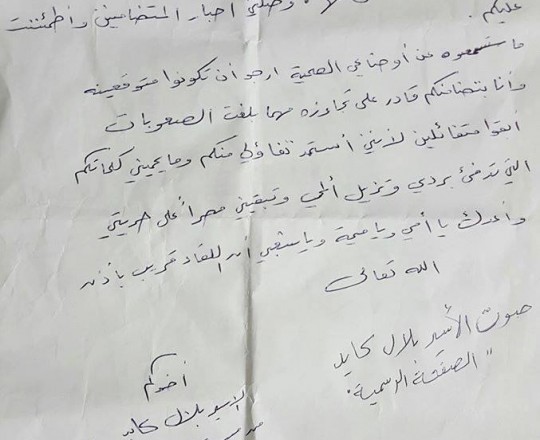 وصلني أخبار المتضامنين وأطمئنت
عليكم.
ما ستسمعوه عن أوضاعي الصحية ارجو أن تكونوا متوقعينه
وأنا بتضامنكم قادر على تجاوزه مهما بلغت الصعوبات
أبقوا متفائلين لأنني أستمد تفاؤلي منكم وما يحميني كلماتكم
التي تدفئ بردي وتزيل ألمي وتبقيني مصراً على حريتي
وأعدك يا أمي ويا شعبي أن اللقاء قريب بأذن
الله تعالى
صوت الأسير بلال كايد
"الصفحة الرسمية"
أخوكم
الأسير بلال كايد